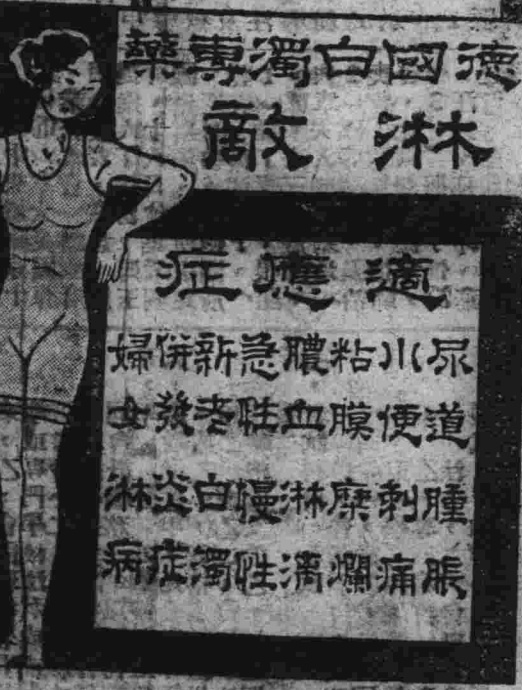 德國白濁專藥
淋敵
適應症
尿道腫脹
小便刺痛
粘膜糜爛
膿血淋漓
急性慢性
新老白濁
併發炎症
婦女淋病